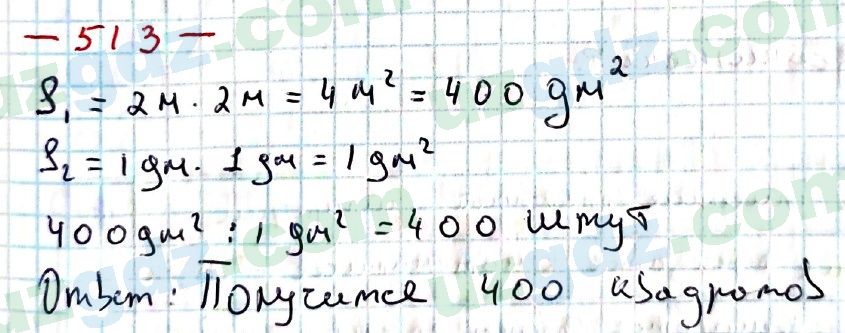 — 513 —
S₁ = 2м · 2м = 4 м² = 400 дм²
S₂ = 1 дм · 1 дм = 1 дм²
400 дм² : 1 дм² = 400 штук
Ответ: Получится 400 квадратов